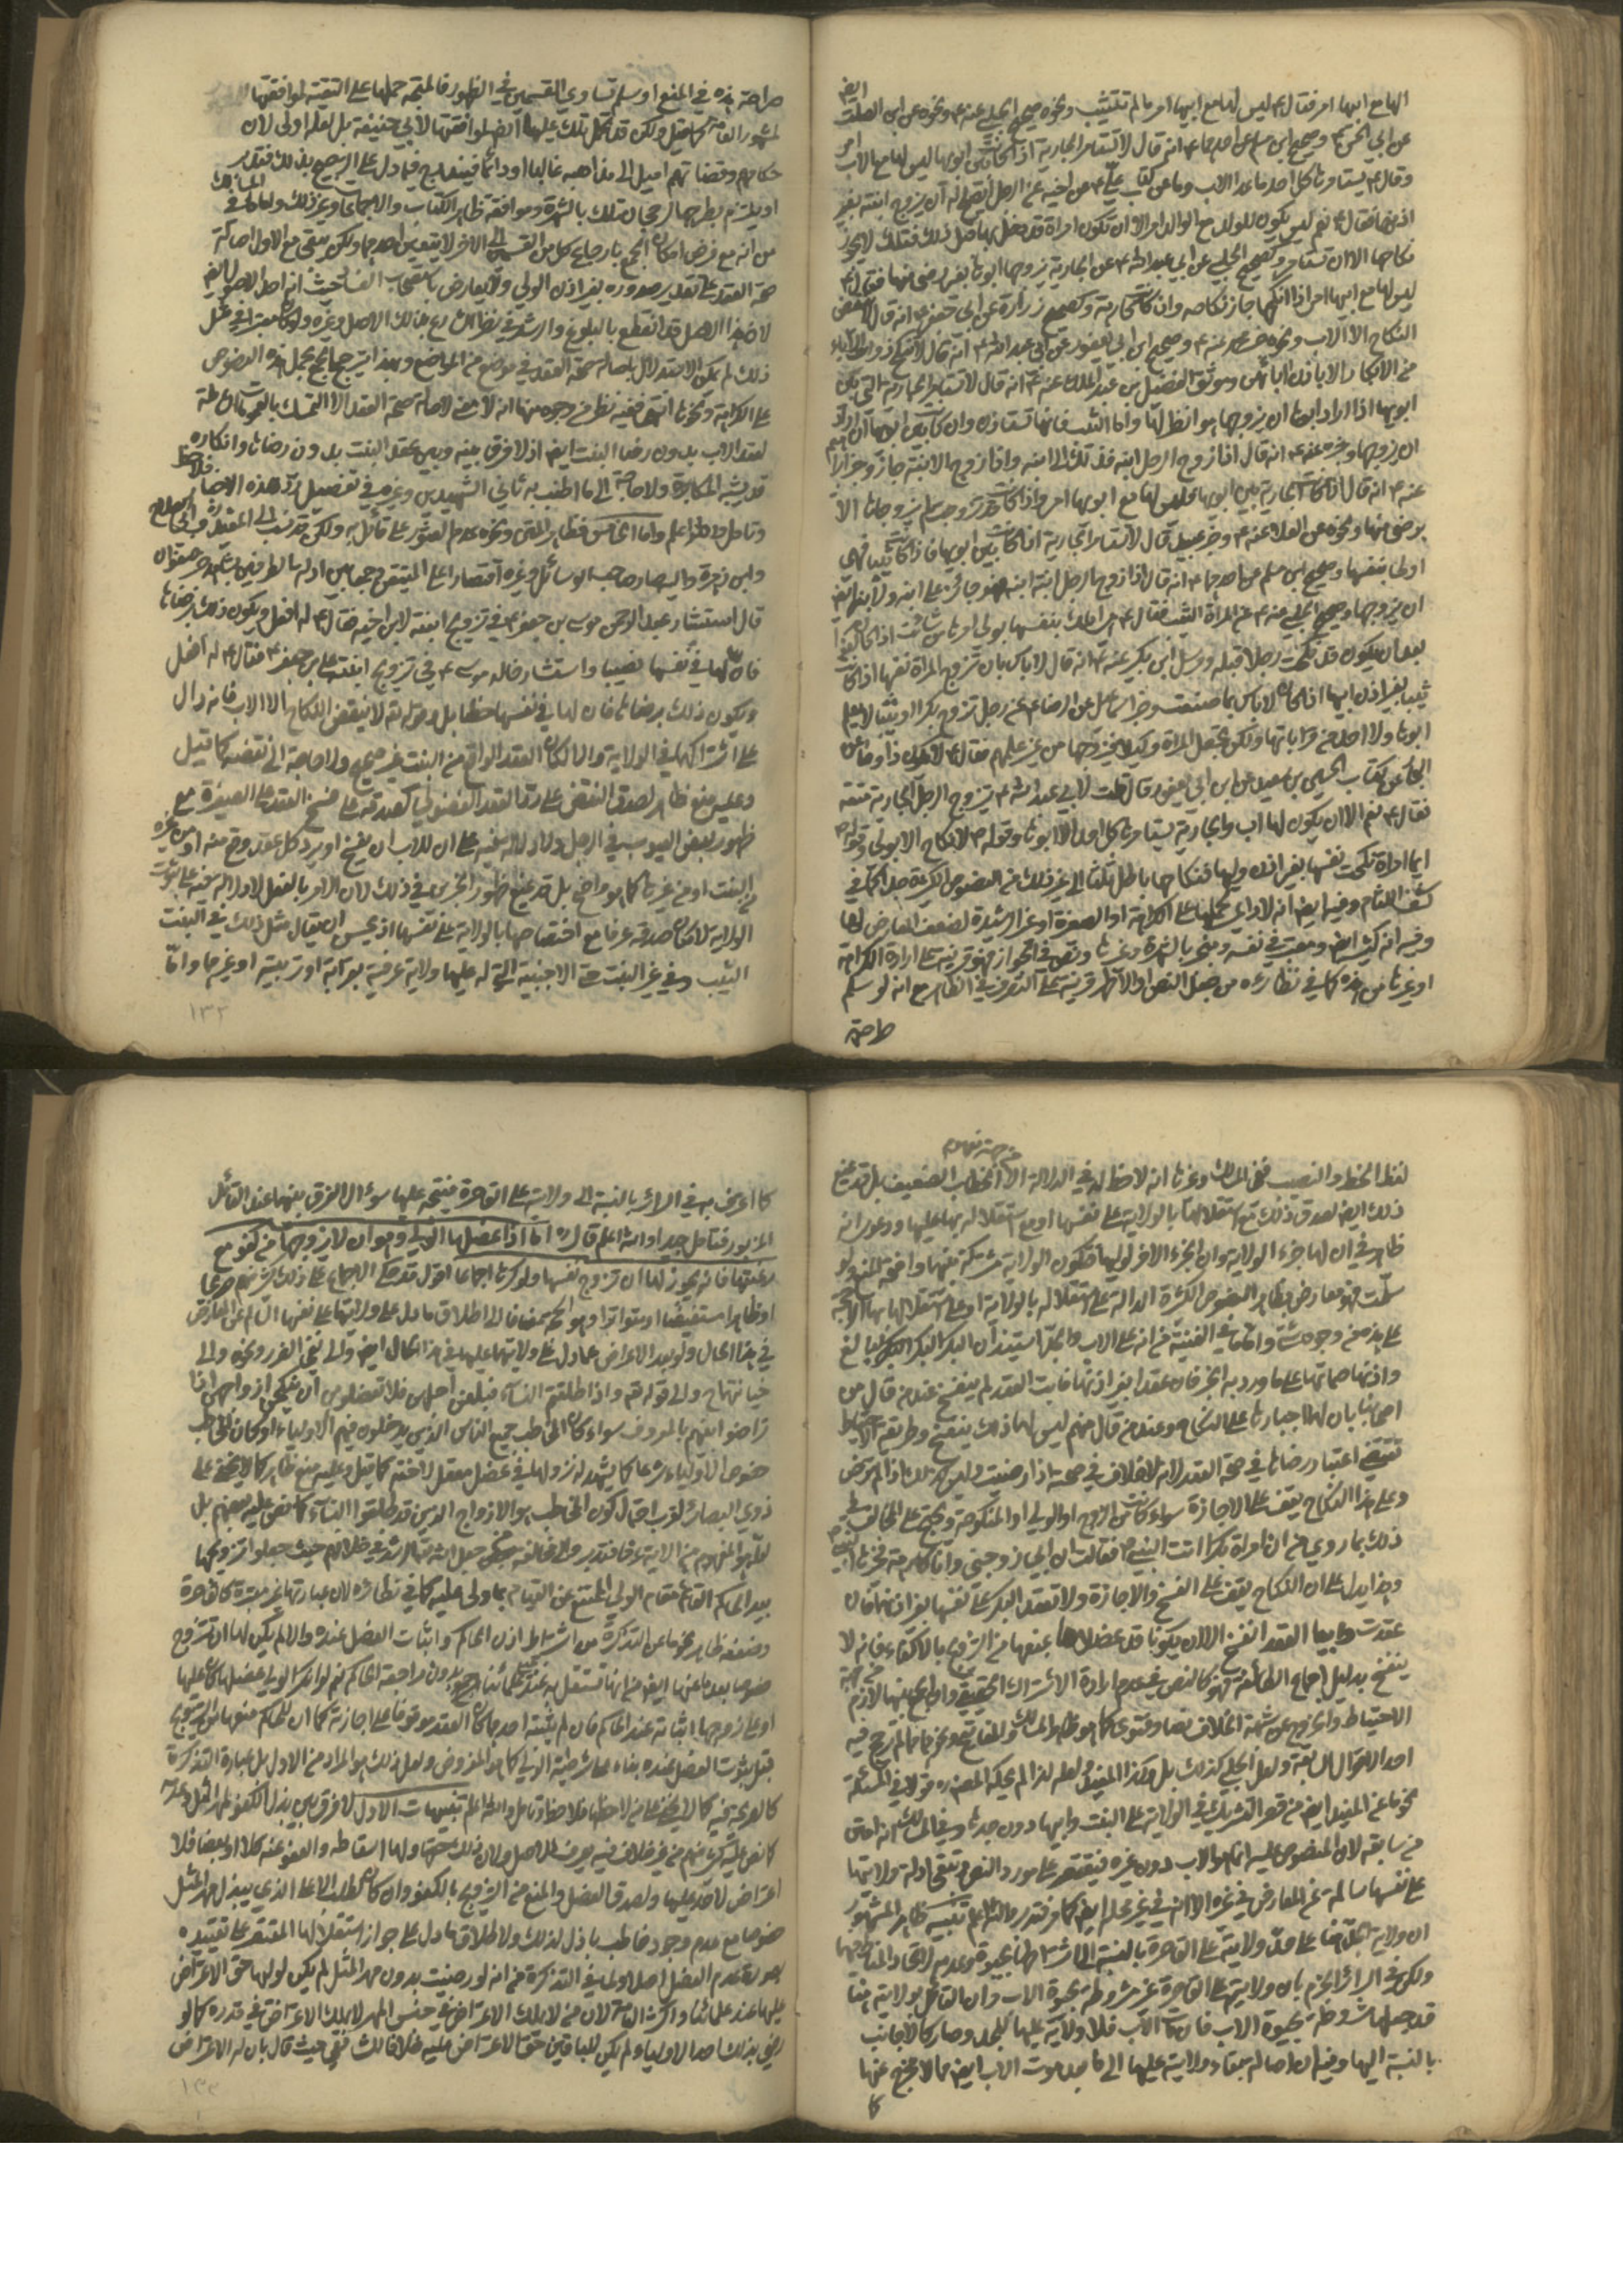 ايضا
الها مع ابيها امر فقال ۴ ليس لها مع ابيها امر ما لم تثيب ونحوه صحيح الحلبي عنه ۴ ونحوه عن ابن الصلت
عن ابي الحسن ۴ وصحيح ابن مسلم عن احدهما ۴ انه قال لا تستامر الجارية اذا كانت بين ابويها ليس لها مع الاب امر
وقال ۴ يستامرها كل احد ما عدا الاب وما عن كتاب علي ۴ عن اخيه عن الرجل أيصلح له ان يزوج ابنته بغير
اذنها فقال ۴ نعم ليس يكون للولد مع الوالد امر الا ان تكون امراة قد دخل بها قبل ذلك فتلك لا يجوز
نكاحها الا ان تستامر وصحيح الحلبي عن ابي عبد الله ۴ عن الجارية يزوجها ابوها بغير رضى منها فقال ۴
ليس لها مع ابيها امر اذا انكحها جاز نكاحه وان كانت كارهة وصحيح زرارة عن ابي جعفر ۴ انه قال لا ينقض
النكاح الا الاب ونحوه خبر عنه ۴ وصحيح ابن ابي يعفور عن ابي عبد الله ۴ انه قال لا تنكح ذوات الآباء
من الابكار الا باذن ابائهن وموثق الفضل بن عبد الملك عنه ۴ انه قال لا تستامر الجارية التي بين
ابويها اذا اراد ابوها ان يزوجها هو انظر لها واما الثيب فانها تستاذن وان كانت بين ابويها اذا ارادا
ان يزوجها وخبره عنه ۴ انه قال اذا زوج الرجل ابنه فذلك الى ابنه واذا زوج الابنة جاز وخبر ابراهيم
عنه ۴ انه قال اذا كانت الجارية بين ابويها فليس لها مع ابويها امر واذا كانت قد تزوجت لم يزوجها الا
برضى منها ونحوه عن العلا عنه ۴ وخبر عبيد قال لا تستامر الجارية اذا كانت بين ابويها فاذا كانت ثيبا فهي
اولى بنفسها وصحيح ابن مسلم عن احدهما ۴ انه قال اذا زوج الرجل ابنة ابنه فهو جائز على ابنه ولابنه ايضا
ان يزوجها وصحيح الحلبي عنه ۴ عن المراة الثيب فقال ۴ هي املك بنفسها تولي امرها من شائت اذا كان كفوا
بعد ان يكون قد نكحت رجلا قبله ومرسل ابن بكير عنه ۴ انه قال لا باس بان تزوج المراة نفسها اذا كانت
ثيبا بغير اذن ابيها اذا كان لا باس بما صنعت وخبر اسمعيل عن الرضا ۴ عن رجل تزوج بكرا او ثيبا لا يعلم
ابوها ولا احد من قراباتها ولكن تجعل المراة وكيلا يزوجها من غير علمهم فقال ۴ لا يكون ذا وما عن
كتاب الحسين بن سعيد عن ابن ابي يعفور قال قلت لابي عبد الله ۴ تزوج الرجل الجارية متعة
فقال ۴ نعم الا ان يكون لها اب والجارية يستامرها كل احد الا ابوها وقوله ۴ لا نكاح الا بولي وقوله
ايما امراة نكحت نفسها بغير اذن وليها فنكاحها باطل ثلثا الى غير ذلك من النصوص الكثيرة
كشف اللثام وفيه ايضا انه لا داعي لحملها على الكراهة او الصغيرة او غير الرشيدة لضعف المعارض لها
وفيه انه كثير ايضا ومعتبر في نفسه ومنجبر بالشهرة وغيرها ونص في الجواز فهو قرينة على ارادة الكراهة
او غيرها من هذه كما في نظائره من جعل النص او الاظهر قرينة على التصرف في الظاهر مع انه لو سلم
صراحة
صراحة هذه في المنع او سلم تساوي القسمين في الظهور فالمتجه حملها على التقية لموافقتها
لمشهور العامة كما قيل ولكن قد تحمل تلك عليها ايضا لموافقتها لابي حنيفة بل لعله اولى لان
حكامهم وقضاتهم اميل الى مذاهبه غالبا او دائما فيندرج فيما دل على الترجيح بذلك فتقدير
او يلتزم بطرحها لرجحان تلك بالشهرة وموافقة ظاهر الكتاب والاجماعات وغير ذلك
من انه مع فرض امكان الجمع بارجاع كل من القسمين الى الاخر لا يتعين احدهما ولكن يبقى مع الاول اصالة
صحة العقد على تقدير صدوره بغير اذن الولي ولا يعارض باستصحاب الفساد حيث انه اصل ايضا
لان هذا الاصل قد انقطع بالبلوغ والرشد
ذلك لم يمكن الاستدلال باصالة صحة العقد في موضع من المواضع وبهذا يترجح بحمل هذه النصوص
على الكراهة ونحوها انتهى ففيه نظر من وجوه منها انه لا معنى لاصالة صحة العقد الا التمسك بالعمومات
لعقد الاب بدون رضا البنت ايضا اذ لا فرق بينه وبين عقد البنت بدون رضاه وانكاره
قد يشبه المكابرة ولا حاجة الى ما اطنب به ثاني الشهيدين وغيره في تفصيل رد هذه الاخبار فلاحظ
وتامل والله اعلم واما ونحوه عدم العثور على قائل به ولكن قد نسب الى المفيد والحلبي
وابن زهرة واليه صار صاحب الوسائل وغيره اقتصارا على المتيقن وجمعا بين ادلة الطرفين
قال استشار عبد الرحمن موسى بن جعفر ۴ في تزويج ابنته لابن اخيه فقال ۴ له افعل ويكون ذلك برضاها
فان لها في نفسها نصيبا واستشار خالد موسى ۴ في تزويج ابنته علي بن جعفر ۴ فقال ۴ له افعل
ويكون ذلك برضاها فان لها في نفسها حظا بل وقوله ۴ لا ينقض النكاح الا الاب فانه دال
على اشتراكهما في الولاية والا لكان العقد الواقع من البنت غير صحيح ولا حاجة الى نقضه كما قيل
وعليه منع ظاهر لصدق النقض على رد العقد الفضولي كصدقه على فسخ العقد على الصغيرة مع
ظهور بعض العيوب في الرجل ولا دلالة فيه على ان للاب ان يفسخ او يرد كل عقد وقع منه او من غيره
من البنت او من غيرها كما هو واضح بل قد يمنع ظهور الخبرين في ذلك لان الامر بالفعل لا دلالة فيه على ثبوت
الولاية لامكان صدقه عرفا مع اختصاصها بالولاية على نفسها اذ يحسن ان يقال مثل ذلك في البنت
الثيب وفي غير البنت حتى الاجنبية التي له عليها ولاية عرفية بقرابة او تربية او غيرهما واما
١٣٢
لفظ الحظ والنصيب ففي المسالك وغيرها انه لاحظ له في الدلالة الا الخطاب الضعيف بل قد يمنع
ذلك ايضا لصدق ذلك مع استقلالها بالولاية على نفسها او مع استقلاله بها عليها ودعوى انه
ظاهر في ان لها جزء الولاية وان الجزء الاخر لوليها فتكون الولاية مشتركة بينهما واضحة المنع ولو
سلمت فهو معارض بظاهر النصوص الكثيرة الدالة على استقلاله بالولاية او على استقلالها بها الراجحة
على هذه من وجوه شتى واما ما في الغنية من انه على الاب والجد استيذان البكر البالغ
واذنها صماتها على ما ورد به الخبر فان عقد بغير اذنها فابت العقد لم ينفسخ عند من قال من
اصحابنا بان لهما اجبارها على النكاح وعند من قال منهم ليس لهما ذلك ينفسخ وطريقة الاحتياط
تقتضي اعتبار رضاها في صحة العقد لانه لا خلاف في صحته اذا رضيت وليس كذلك اذا لم ترض
وعلى هذا النكاح يقف على الاجازة سواء كانت من الزوج او الولي او المنكوحة ويحتج على المخالف في
ذلك بما روي من ان امراة بكرا اتت النبي ۴ فقالت ان ابي زوجني وانا كارهة فخيرها النبي
وهذا يدل على ان النكاح يقف على الفسخ والاجازة ولا تعقد البكر على نفسها بغير اذنهما فان
عقدت وابيا العقد انفسخ الا ان يكونا قد عضلاها بمنعها من التزويج بالاكفاء فانه لا
ينفسخ بدليل اجماع الطائفة فهو كالنص
الاحتياط والخروج عن شبهة الخلاف نصا وفتوى كما هو ظاهر المسالك والمفاتيح وغيرهما مما لم ترجح فيه
احد الاقوال السابقة ولعل الحلبي كذلك بل وكذا المفيد ولعله لذا لم يحكه المصنف قولا في المسئلة
نحو ما عن المفيد ايضا من قصر التشريك في الولاية على البنت وابيها دون جدها وفي المسالك انه امتن
من سابقه لان المنصوص عليه انما هو الاب دون غيره فيقتصر على مورد النص وتبقى ادلة ولايتها
على نفسها سالمة عن المعارض في غيره الا انه في غير محله ايضا كما مر فتدبر والله اعلم تنبيه ظاهر المشهور
ان ولاية الجد هنا على حد ولايته على القاصرة بالنسبة الى اشتراطها بحيوة
ولكن في السرائر الجزم بان ولايته على القاصرة غير مشروطة بحيوة الاب وان القائل بولايته هنا
قد جعلها مشروطة بحيوة الاب فان مات الاب فلا ولاية عليها للجد وصار كالاجانب
بالنسبة اليها وفيه ان اصالة بقاء ولايته عليها الى ما بعد موت الاب ايضا مما لا مخرج عنها
كا
كما اعترف به في السرائر بالنسبة الى ولايته على القاصرة فيتجه عليها سؤال الفرق بينهما عند القائل
المزبور فتامل جيدا والله اعلم قال ره اما اذا عضلها الولي وهو ان لا يزوجها من كفو مع
رغبتها فانه يجوز لها ان تزوج نفسها ولو كرها اجماعا اقول قد حكى الاجماع على ذلك كثير منهم صريحا
او ظاهرا مستفيضا او متواترا وهو الحجة مضافا الى اطلاق ما دل على ولايتها على نفسها السالم عن المعارض
في هذا الحال ولو بعد الاعراض عما دل على ولايتهما عليها في هذا الحال ايضا والى نفي الضرر ونحوه والى
خيانتهما والى قوله تعالى واذا طلقتم النساء فبلغن اجلهن فلا تعضلوهن ان ينكحن ازواجهن اذا
تراضوا بينهم بالمعروف سواء كان المخاطب جميع الناس الذين يدخلون فيهم الاولياء او كان المخاطب
خصوص الاولياء شرعا كما يشهد له نزولها في عضل معقل لاخته كما قيل وعليه منع ظاهر كما لا يخفى على
ذوي البصائر لقرب احتمال كون المخاطب هو الازواج الذين قد طلقوا النساء كما نص عليه بعضهم بل
لعله هو المفهوم من الاية عرفا فتدبر والمخالفة محكي جعل الله تعالى الرشد في خلافهم حيث جعلوا تزويجها
بيد الحاكم القائم مقام الولي الممتنع عن القيام بما ولي عليه كما في نظائره لان عبارتها غير معتبرة كالقاصرة
وضعفه ظاهر نحو ما عن التذكرة من اشتراط اذن الحاكم واثبات العضل عنده والا لم يكن لها ان تتزوج
خصوصا بعد ما عنها ايضا من انها تستقل به عند علمائنا اجمع بدون مراجعة الحاكم نعم لو انكر الولي عضلها كان عليها
او على زوجها اثباته عند الحاكم فان لم يثبته احدهما كان العقد موقوفا على اجازته كما ان للحاكم منعها من التزويج
قبل ثبوت العضل عنده بناء على شرطية الولي كما هو المفروض ولعل ذلك هو المراد من الاول بل عبارة التذكرة
كالصريحة فيه كما لا يخفى على من لاحظها فلاحظ وتامل والله العالم تنبيهات الاول لا فرق بين بذل الكفو لمهر المثل وعدمه
كما نص عليه كثير منهم من غير خلاف فيه يعرف للاصل ولان ذلك حقها ولها اسقاطه والعفو عنه كلا او بعضا فلا
اعتراض لاحد عليها ولصدق العضل والمنع من التزويج بالكفو وان كان لطلب الاعلى الذي يبذل مهر المثل
خصوصا مع عدم وجود خاطب باذل لذلك ولاطلاق ما دل على جواز استقلالها المقتصر على تقييده
بصورة عدم العضل اصلا ولما في التذكرة من انه لو رضيت بدون مهر المثل لم يكن لوليها حق الاعتراض
عليها عند علمائنا واكثر العامة لان من لا يملك الاعتراض في جنس المهر لا يملك الاعتراض في قدره كما لو
رضي بذلك احد الاولياء لم يكن للباقين حق الاعتراض عليه خلافا للشافعي حيث قال بان له الاعتراض